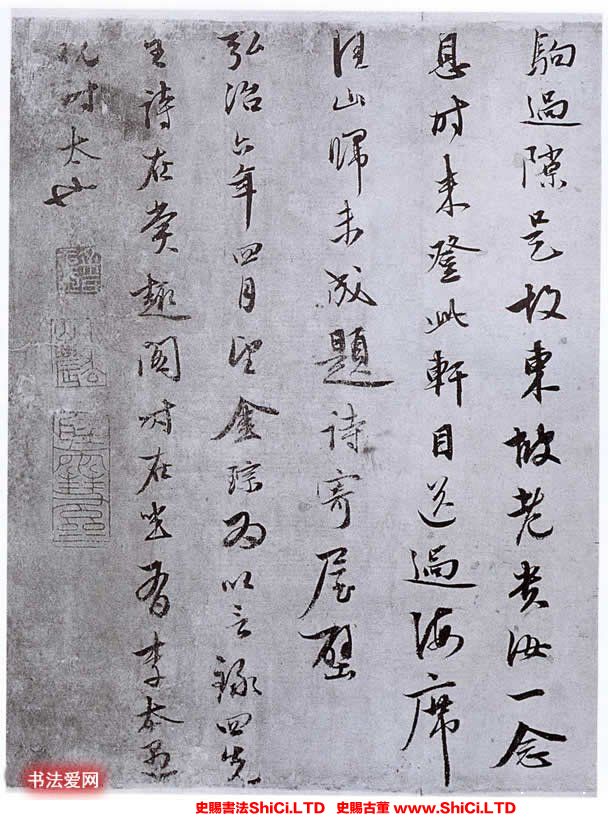 駒過隙是故東坡老貴汝一念
息时来登此軒目送過海席
山歸未成題詩寄屋壁
弘治六年四月望金琮為以言錄四先
生詩在賞趣閣时在坐者李太
时太
书法爱网
史賜書法ShiCi.LTD 史賜古董 www.ShiCi.LTD